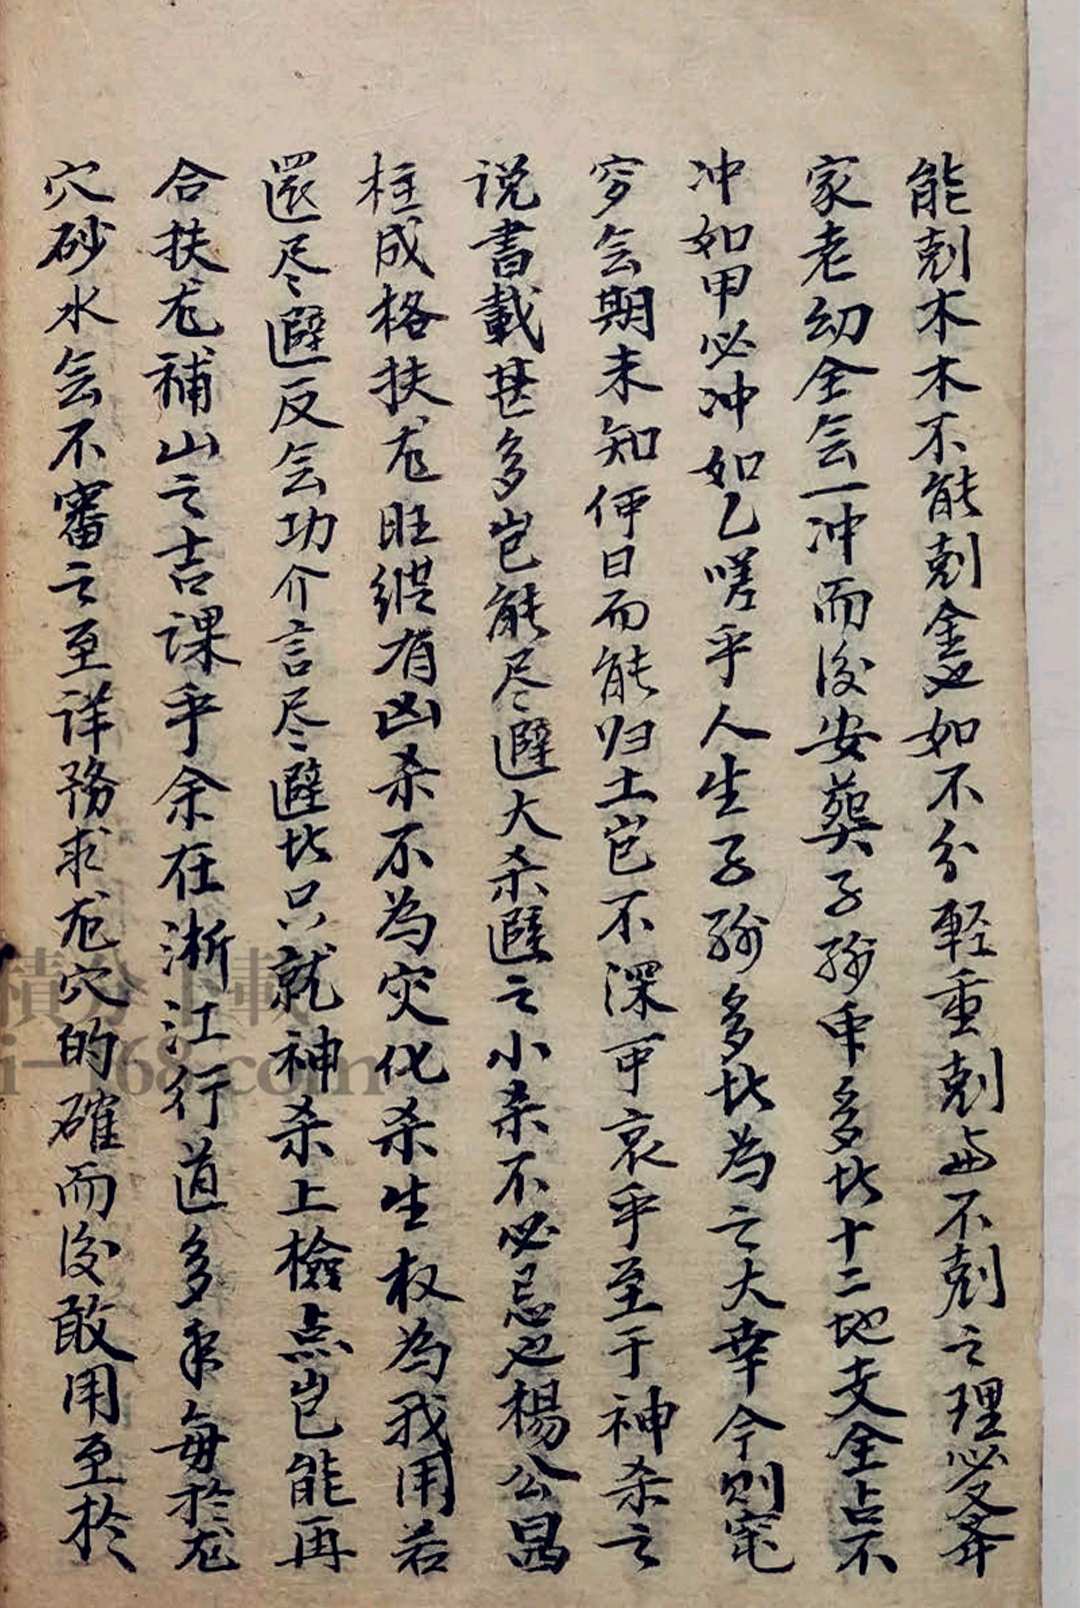 能剋木木不能剋金也如不分輕重剋与不剋之理必受
家老幼全会一冲而後安葬子孙中多比十二地支全占不
冲如甲必冲如乙嗟乎人生子孙多比為之大幸今则
穷会期未知何日而能归土岂不深可哀乎至于神杀之
说書載甚多岂能尽避大杀避之小杀不必忌也楊公曷
柱成格扶龙旺縱有凶杀不為灾化杀生权為我用若
還尽避反会功介言尽避比只就神杀上檢点岂能再
合扶龙補山之吉課乎余在淅江行道多年每於龙
穴砂水会不審之至详務求龙穴的確而後敢用至於
積分下載
i-168.com